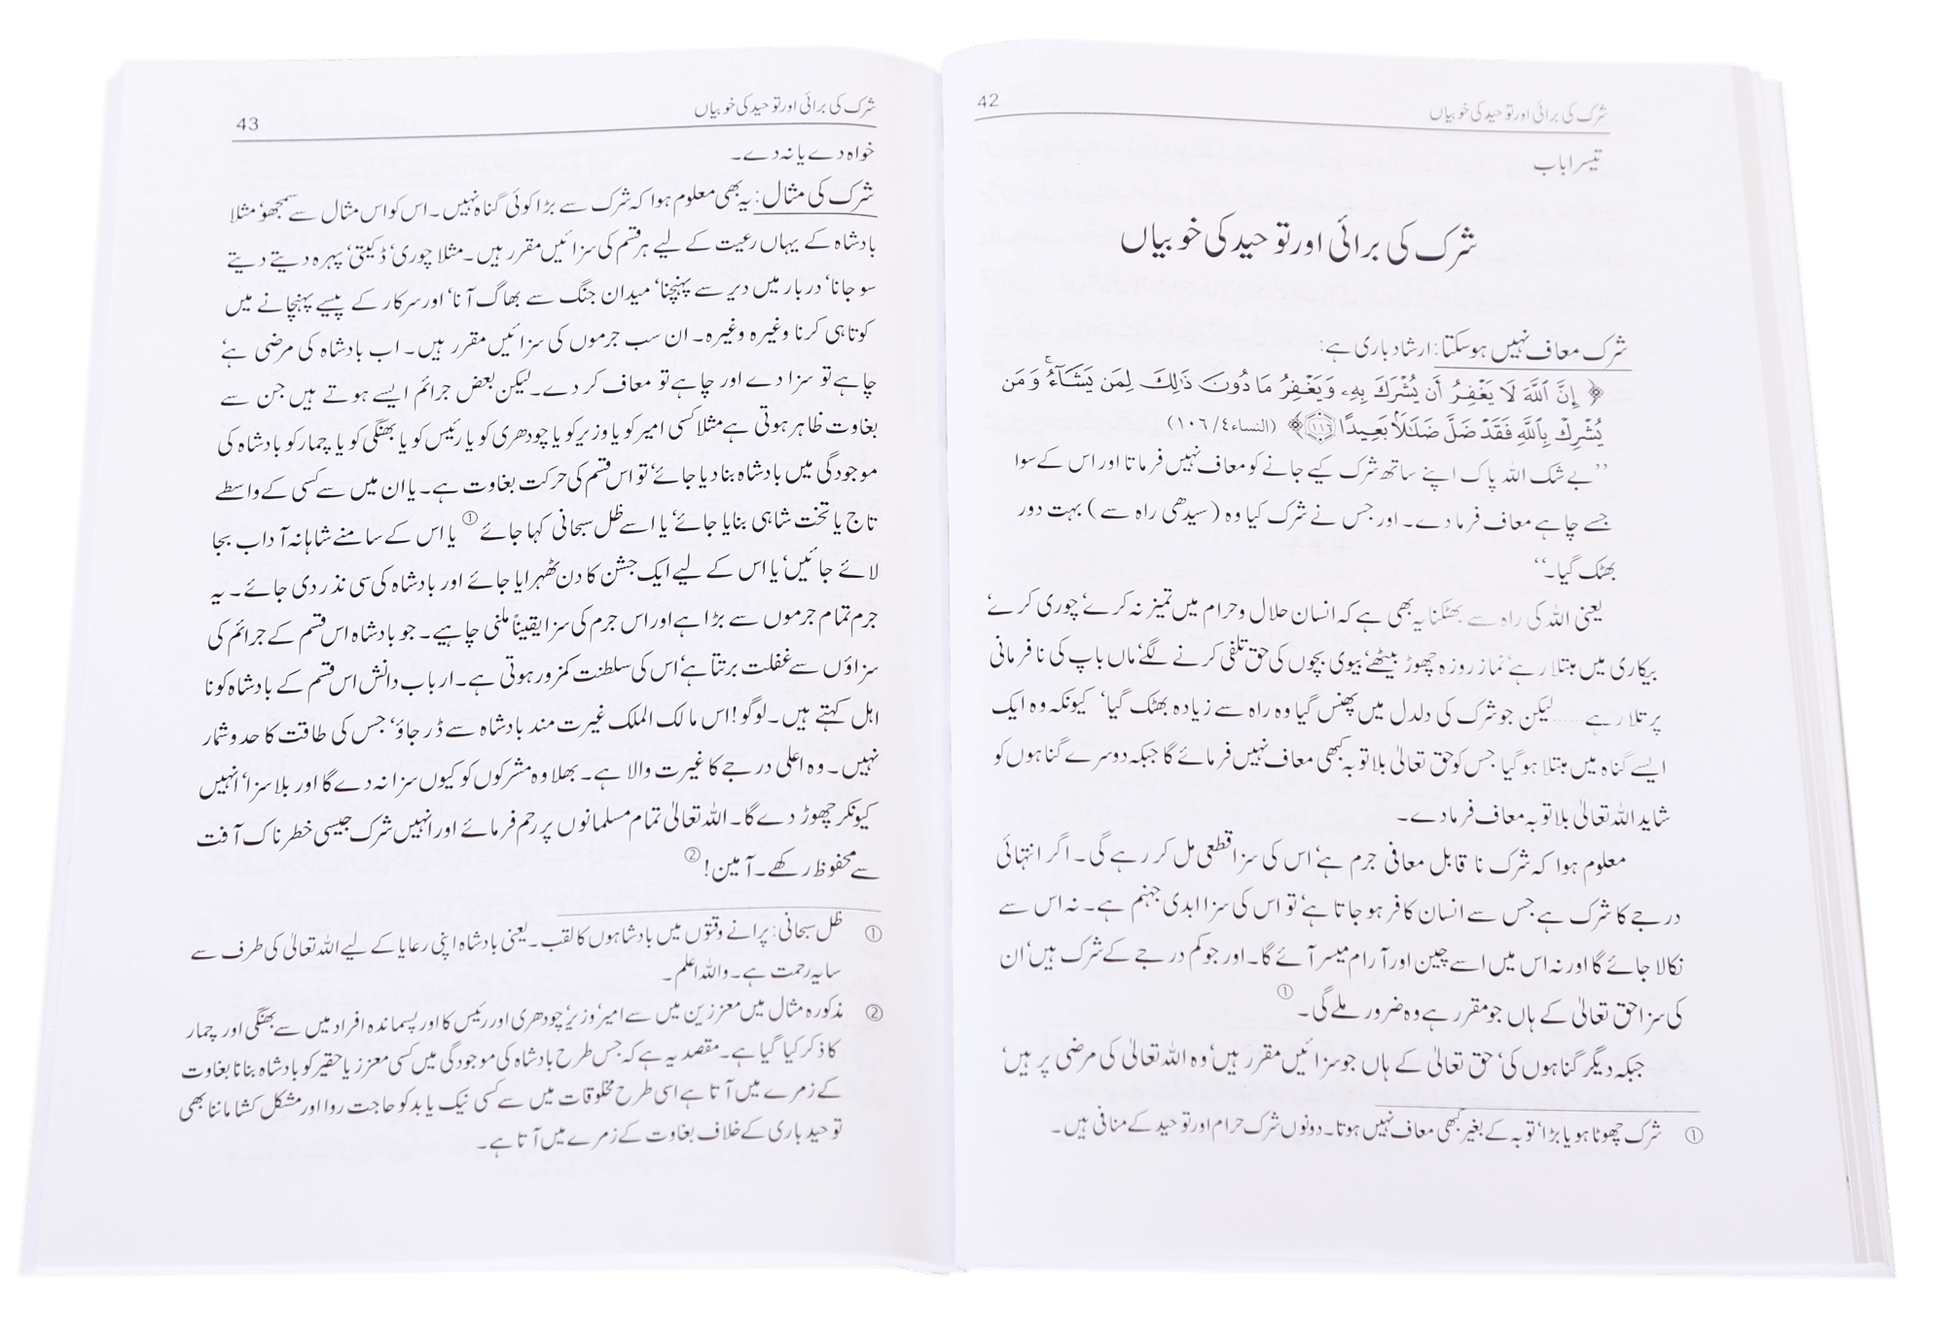 شرک کی برائی اور توحید کی خوبیاں
42
تیسرا باب
شرک کی برائی اور توحید کی خوبیاں
شرک معاف نہیں ہوسکتا: ارشاد باری ہے:
﴿ إِنَّ ٱللَّهَ لَا يَغْفِرُ أَن يُشْرَكَ بِهِۦ وَيَغْفِرُ مَا دُونَ ذَٰلِكَ لِمَن يَشَآءُ ۚ وَمَن
يُشْرِكْ بِٱللَّهِ فَقَدْ ضَلَّ ضَلَـٰلًا بَعِيدًا ﴿١١٦﴾﴾ (النساء٤/١٠٦)
’’بے شک اللہ پاک اپنے ساتھ شرک کیے جانے کو معاف نہیں فرماتا اور اس کے سوا
جسے چاہے معاف فرما دے۔ اور جس نے شرک کیا وہ (سیدھی راہ سے) بہت دور
بھٹک گیا۔‘‘
یعنی اللہ کی راہ سے بھٹکنا یہ بھی ہے کہ انسان حلال و حرام میں تمیز نہ کرے‘ چوری کرے‘
بیکاری میں مبتلا رہے‘ نماز روزہ چھوڑ بیٹھے‘ بیوی بچوں کی حق تلفی کرنے لگے‘ ماں باپ کی نافرمانی
پر تلا رہے...... لیکن جو شرک کی دلدل میں پھنس گیا وہ راہ سے زیادہ بھٹک گیا‘ کیونکہ وہ ایک
ایسے گناہ میں مبتلا ہوگیا جس کو حق تعالیٰ بلا توبہ کبھی معاف نہیں فرمائے گا جبکہ دوسرے گناہوں کو
شاید اللہ تعالیٰ بلا توبہ معاف فرما دے۔
معلوم ہوا کہ شرک نا قابل معافی جرم ہے‘ اس کی سزا قطعی مل کر رہے گی۔ اگر انتہائی
درجے کا شرک ہے جس سے انسان کافر ہو جاتا ہے‘ تو اس کی سزا ابدی جہنم ہے۔ نہ اس سے
نکالا جائے گا اور نہ اس میں اسے چین اور آرام میسر آئے گا۔ اور جو کم درجے کے شرک ہیں‘ ان
کی سزا حق تعالیٰ کے ہاں جو مقرر ہے وہ ضرور ملے گی۔ ①
جبکہ دیگر گناہوں کی‘ حق تعالیٰ کے ہاں جو سزائیں مقرر ہیں‘ وہ اللہ تعالیٰ کی مرضی پر ہیں‘
① شرک چھوٹا ہو یا بڑا‘ توبہ کے بغیر کبھی معاف نہیں ہوتا۔ دونوں شرک حرام اور توحید کے منافی ہیں۔
شرک کی برائی اور توحید کی خوبیاں
43
خواہ دے یا نہ دے۔
شرک کی مثال: یہ بھی معلوم ہوا کہ شرک سے بڑا کوئی گناہ نہیں۔ اس کو اس مثال سے سمجھو‘ مثلا
بادشاہ کے یہاں رعیت کے لیے ہر قسم کی سزائیں مقرر ہیں۔ مثلا چوری‘ ڈکیتی‘ پہرہ دیتے دیتے
سو جانا‘ دربار میں دیر سے پہنچنا‘ میدان جنگ سے بھاگ آنا‘ اور سرکار کے پیسے پہنچانے میں
کوتاہی کرنا وغیرہ وغیرہ۔ ان سب جرموں کی سزائیں مقرر ہیں۔ اب بادشاہ کی مرضی ہے‘
چاہے تو سزا دے اور چاہے تو معاف کر دے۔ لیکن بعض جرائم ایسے ہوتے ہیں جن سے
بغاوت ظاہر ہوتی ہے مثلا کسی امیر کو یا وزیر کو یا چودھری کو یا رئیس کو یا بھنگی کو یا چمار کو بادشاہ کی
موجودگی میں بادشاہ بنا دیا جائے‘ تو اس قسم کی حرکت بغاوت ہے۔ یا ان میں سے کسی کے واسطے
تاج یا تخت شاہی بنایا جائے‘ یا اسے ظل سبحانی کہا جائے ① یا اس کے سامنے شاہانہ آداب بجا
لائے جائیں‘ یا اس کے لیے ایک جشن کا دن ٹھہرایا جائے اور بادشاہ کی سی نذر دی جائے۔ یہ
جرم تمام جرموں سے بڑا ہے اور اس جرم کی سزا یقیناً ملنی چاہیے۔ جو بادشاہ اس قسم کے جرائم کی
سزاؤں سے غفلت برتتا ہے‘ اس کی سلطنت کمزور ہوتی ہے۔ ارباب دانش اس قسم کے بادشاہ کو نا
اہل کہتے ہیں۔ لوگو! اس مالک الملک غیرت مند بادشاہ سے ڈر جاؤ‘ جس کی طاقت کا حد و شمار
نہیں۔ وہ اعلی درجے کا غیرت والا ہے۔ بھلا وہ مشرکوں کو کیوں سزا نہ دے گا اور بلا سزا‘ انہیں
کیونکر چھوڑ دے گا۔ اللہ تعالیٰ تمام مسلمانوں پر رحم فرمائے اور انہیں شرک جیسی خطرناک آفت
سے محفوظ رکھے۔ آمین! ②
① ظل سبحانی: پرانے وقتوں میں بادشاہوں کا لقب۔ یعنی بادشاہ اپنی رعایا کے لیے اللہ تعالیٰ کی طرف سے
سایہ رحمت ہے۔ واللہ اعلم۔
② مذکورہ مثال میں معززین میں سے امیر‘ وزیر‘ چودھری اور رئیس کا اور پسماندہ افراد میں سے بھنگی اور چمار
کا ذکر کیا گیا ہے۔ مقصد یہ ہے کہ جس طرح بادشاہ کی موجودگی میں کسی معزز یا حقیر کو بادشاہ بنانا بغاوت
کے زمرے میں آتا ہے اسی طرح مخلوقات میں سے کسی نیک یا بد کو حاجت روا اور مشکل کشا ماننا بھی
توحید باری کے خلاف بغاوت کے زمرے میں آتا ہے۔